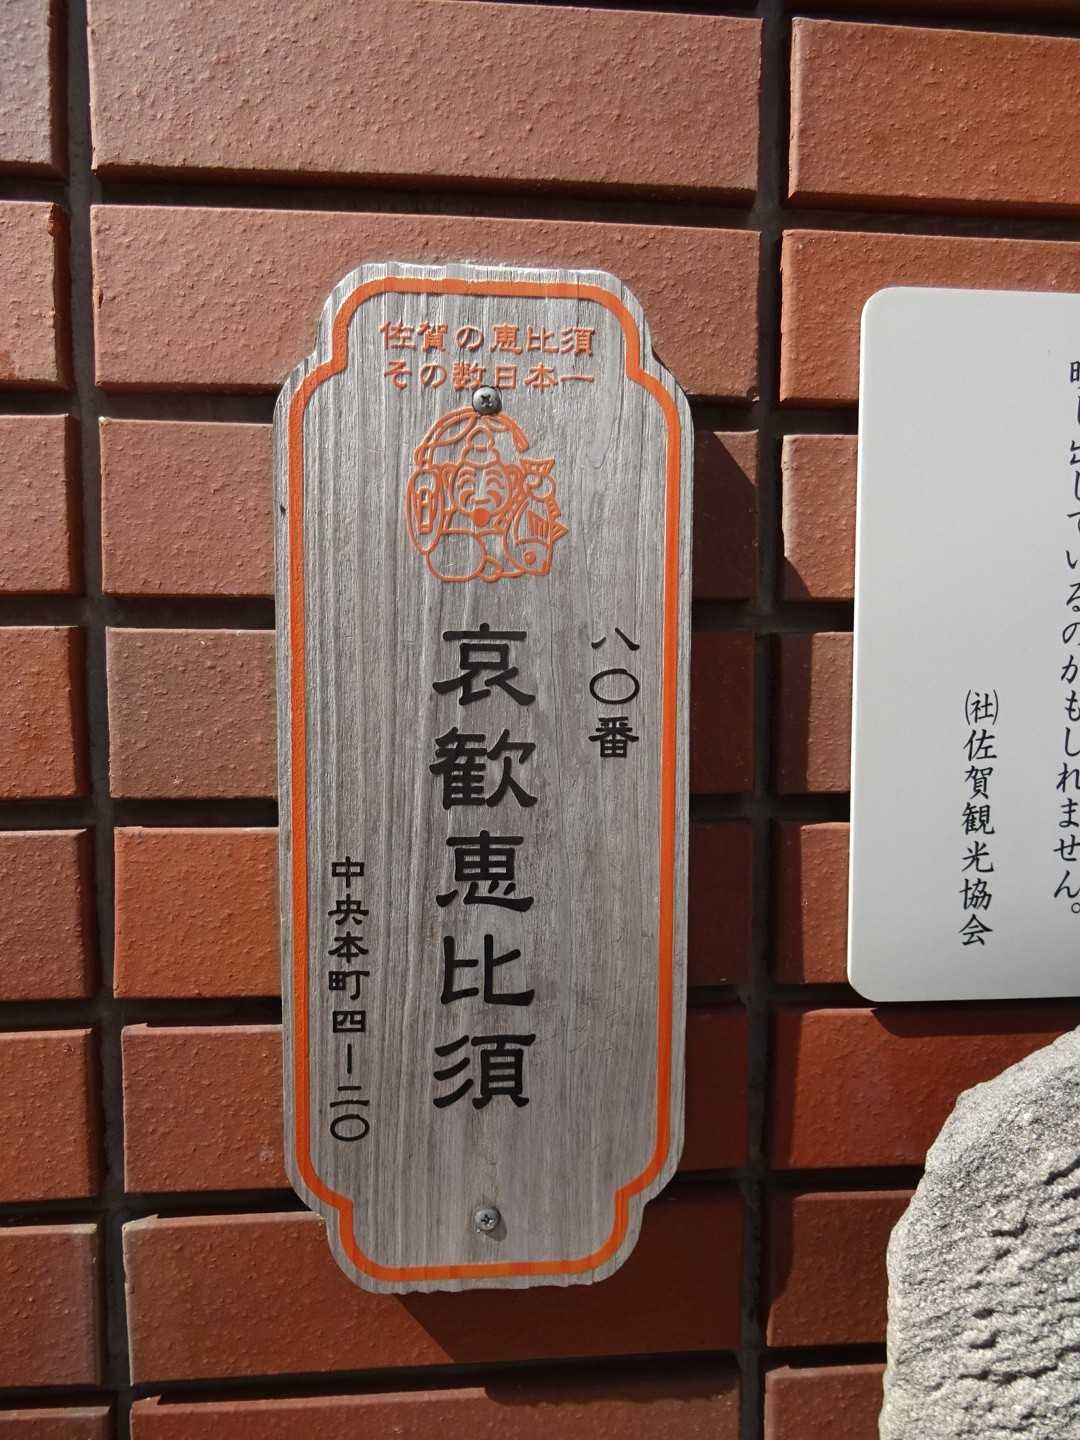 佐賀の恵比須
その数日本一
八〇番
哀歓恵比須
中央本町四ー二〇
出しているのかもしれません。
㈳佐賀観光協会